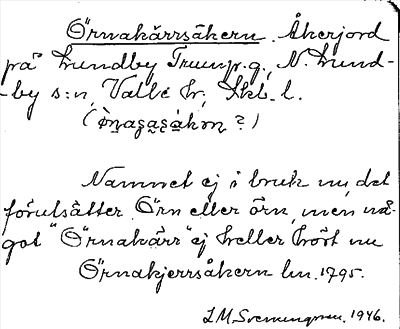 Örnakärrsåkern. Åkerjord
på Lundby Trump.g., N. Lund-
-by s:n, Valle hr, Skb. l.
Namnet ej i bruk nu, det
förutsätter Örn eller örn, men nå-
got "Örnakärr" ej heller hört nu
Örnakjerrsåkern lm. 1795.
1946.